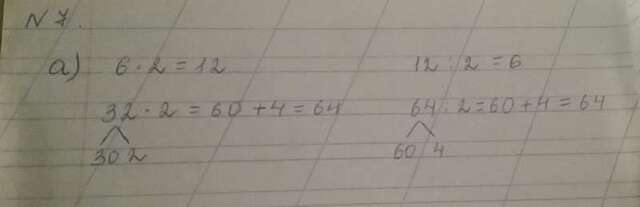 N 7.
а) 6 · 2 = 12 12 : 2 = 6
32 · 2 = 60 + 4 = 64 64 : 2 = 60 + 4 = 64
30 2 60 4